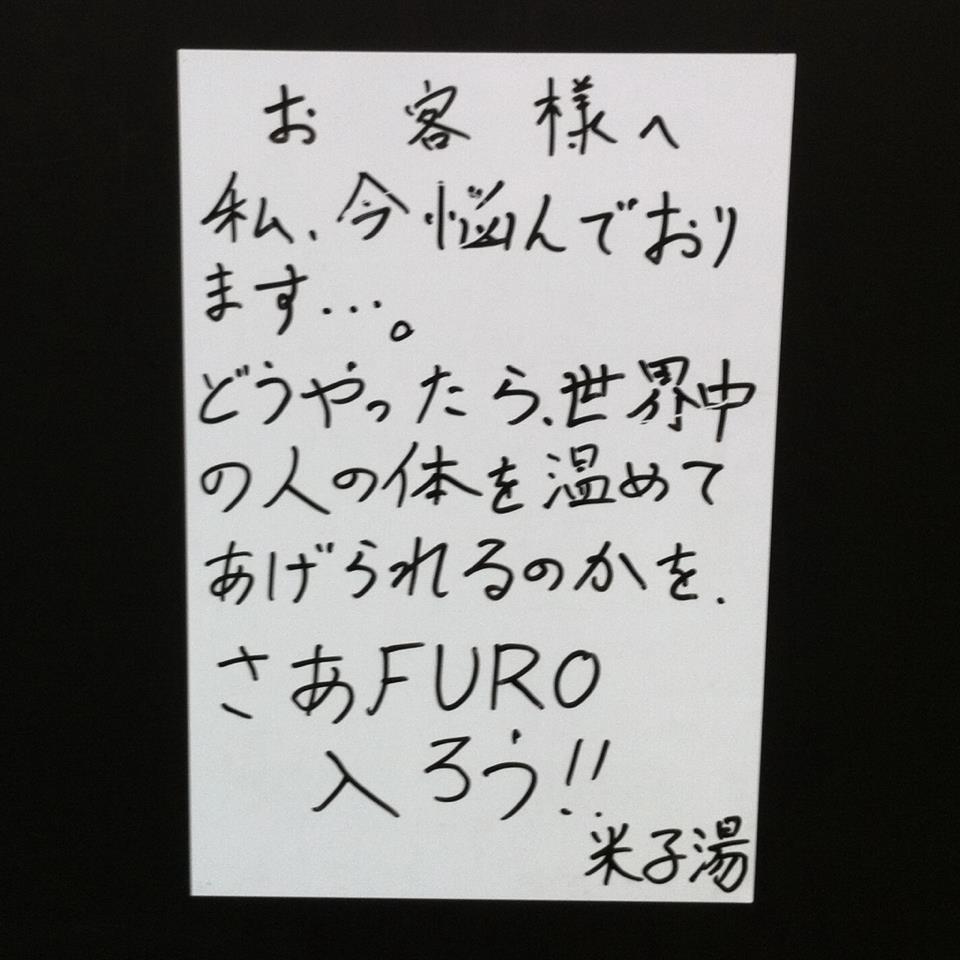 お客様へ
私、今悩んでおり
ます…。
どうやったら、世界中
の人の体を温めて
あげられるのかを、
さあFURO
入ろう!!
米子湯